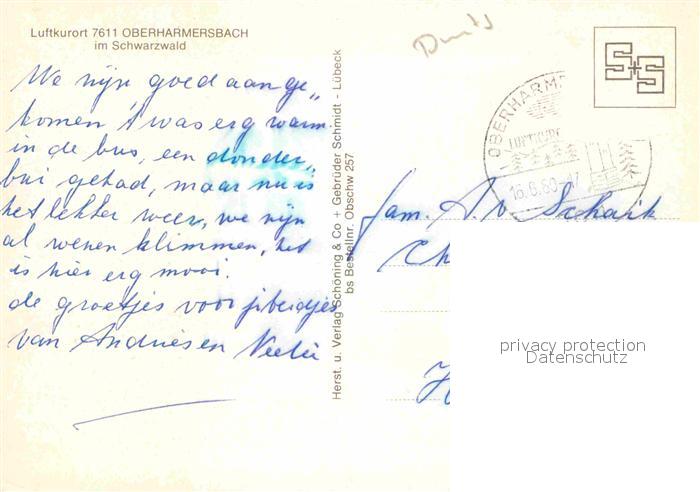 Luftkurort 7611 OBERHARMERSBACH
im Schwarzwald
We zijn goed aange„
komen 't was erg warm
in de bus, een donder„
bui gehad, maar nu is
het lekker weer, we zijn
al wezen klimmen, het
is hier erg mooi.
de groetjes voor jullie
van Andries en
Herst. u. Verlag Schöning & Co + Gebrüder Schmidt - Lübeck
bs Bestellnr. Obschw 257
Duits
S+S
OBERHARME
LUFTKURO
16.6.80-17
fam. A. v Schaik
Ch
H
privacy protection
Datenschutz